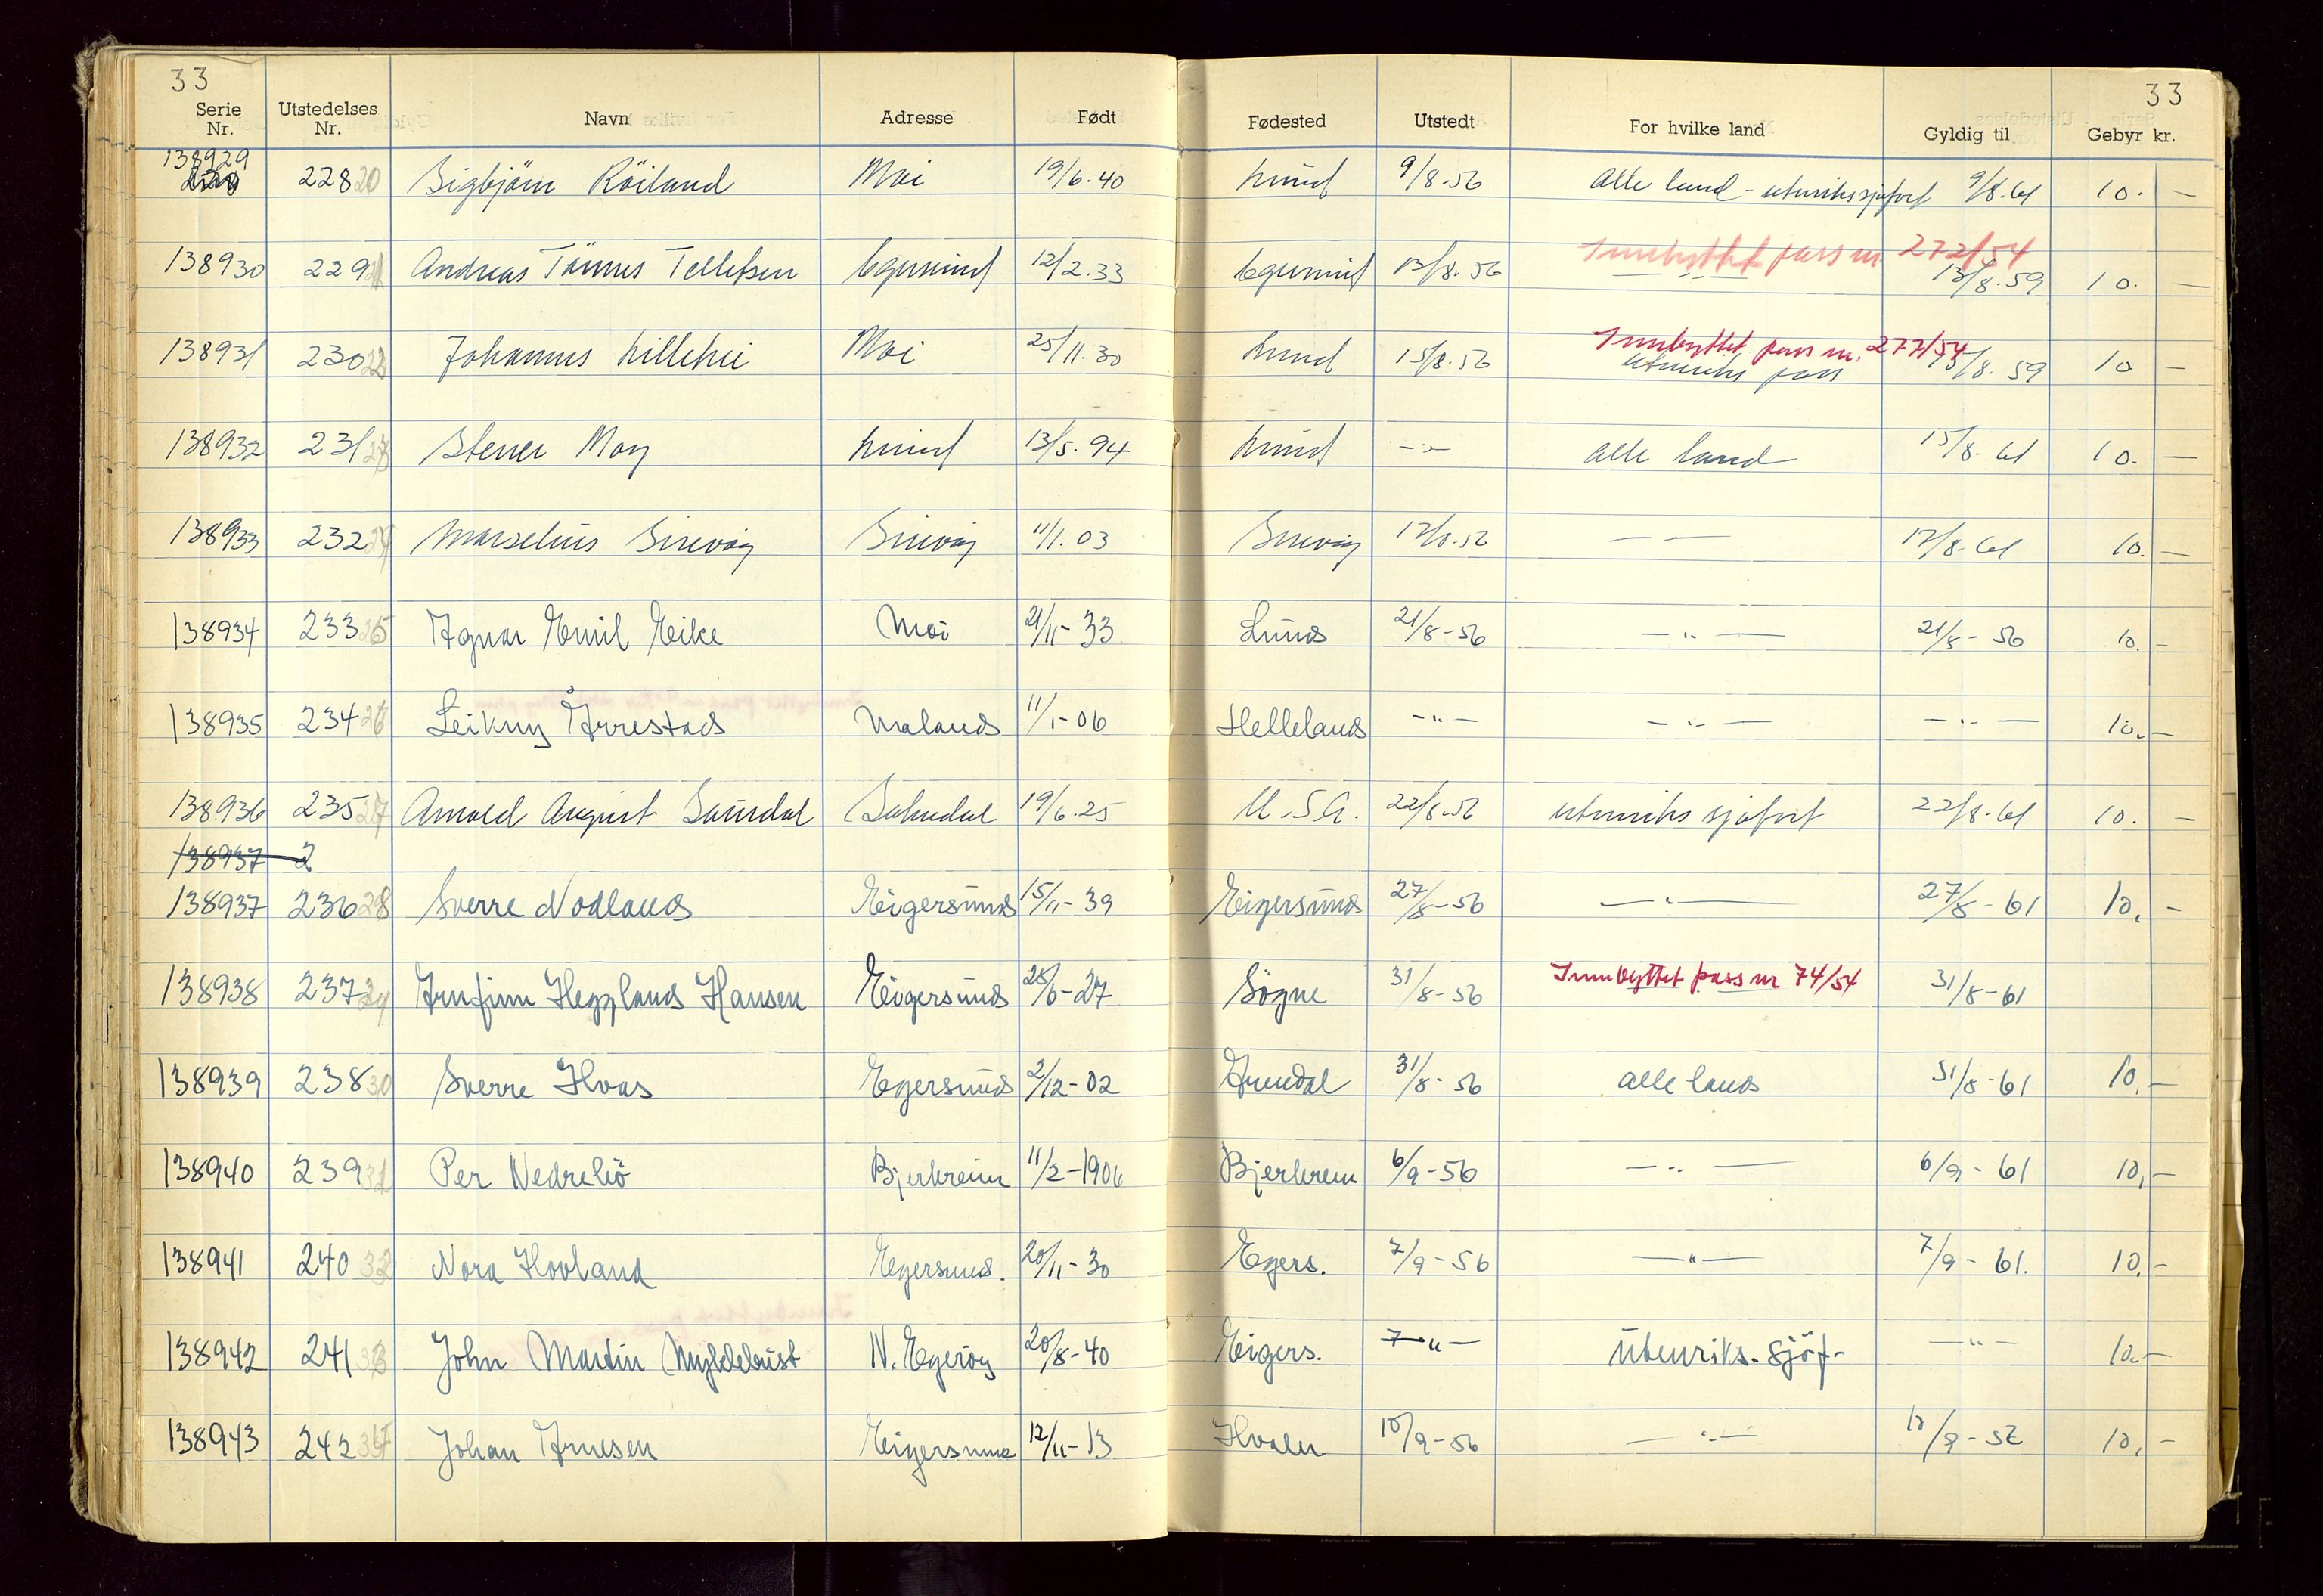 33 33
Serie Nr. Utstedelses Nr. Navn Adresse Født Fødested Utstedt For hvilke land Gyldig til Gebyr kr.
138929 228 20 Sigbjörn Röiland Moi 19/6.40 Lund 9/8-56 Alle land - utenrikssjøfart 9/8.61 10. -
Innbyttet pass nr 272/54
138930 229 21 Andreas Tönnes Tellefsen Egersund 12/2.33 Egersund 13/8.56 - " - 13/8.59 10. -
Innbyttet pass nr. 277/54
138931 230 22 Johannes Lillehei Moi 25/11.30 Lund 15/8.56 utenriks pass 15/8.59 10 -
138932 231 23 Stener Moy Lund 13/5.94 Lund - " - alle land 15/8.61 10. -
138933 232 24 Marselius Sirevåg Sirevåg 11/1.03 Sirevåg 17/8.56 — — 17/8.61 10. -
138934 233 25 Agnar Emil Eike Moi 21/11-33 Lund 21/8-56 - " - 21/8-56 10. -
138935 234 26 Leikny Årrestad Ualand 11/1-06 Helleland - " - - " - - " - 10. -
138936 235 27 Arnold August Saurdal Sokndal 19/6.25 U.S.A. 22/8.56 utenriks sjøfart 22/8.61 10. -
138937 2
138937 236 28 Sverre Nodland Eigersund 15/11-39 Eigersund 27/8-56 - " - 27/8-61 10, -
138938 237 29 Arnfinn Heggland Hansen Eigersund 28/6-27 Søgne 31/8-56 Innbyttet pass nr 74/54 31/8-61
138939 238 30 Sverre Hvas Egersund 2/12-02 Arendal 31/8-56 alle land 31/8-61 10, -
138940 239 31 Per Nedrelid Bjerkreim 11/2-1906 Bjerkreim 6/9-56 - " - 6/9-61 10, -
138941 240 32 Nora Hovland Egersund. 20/11-30 Egers. 7/9-56 - " - 7/9-61. 10, -
138942 241 33 John Martin Myklebust N. Egerøy 20/8-40 Eigers. 7 - " - Utenriks. sjöf- - " - 10. -
138943 242 34 Johan Arnesen Eigersund 12/11-13 Hvaler 10/9-56 - " - 10/9-52 10, -